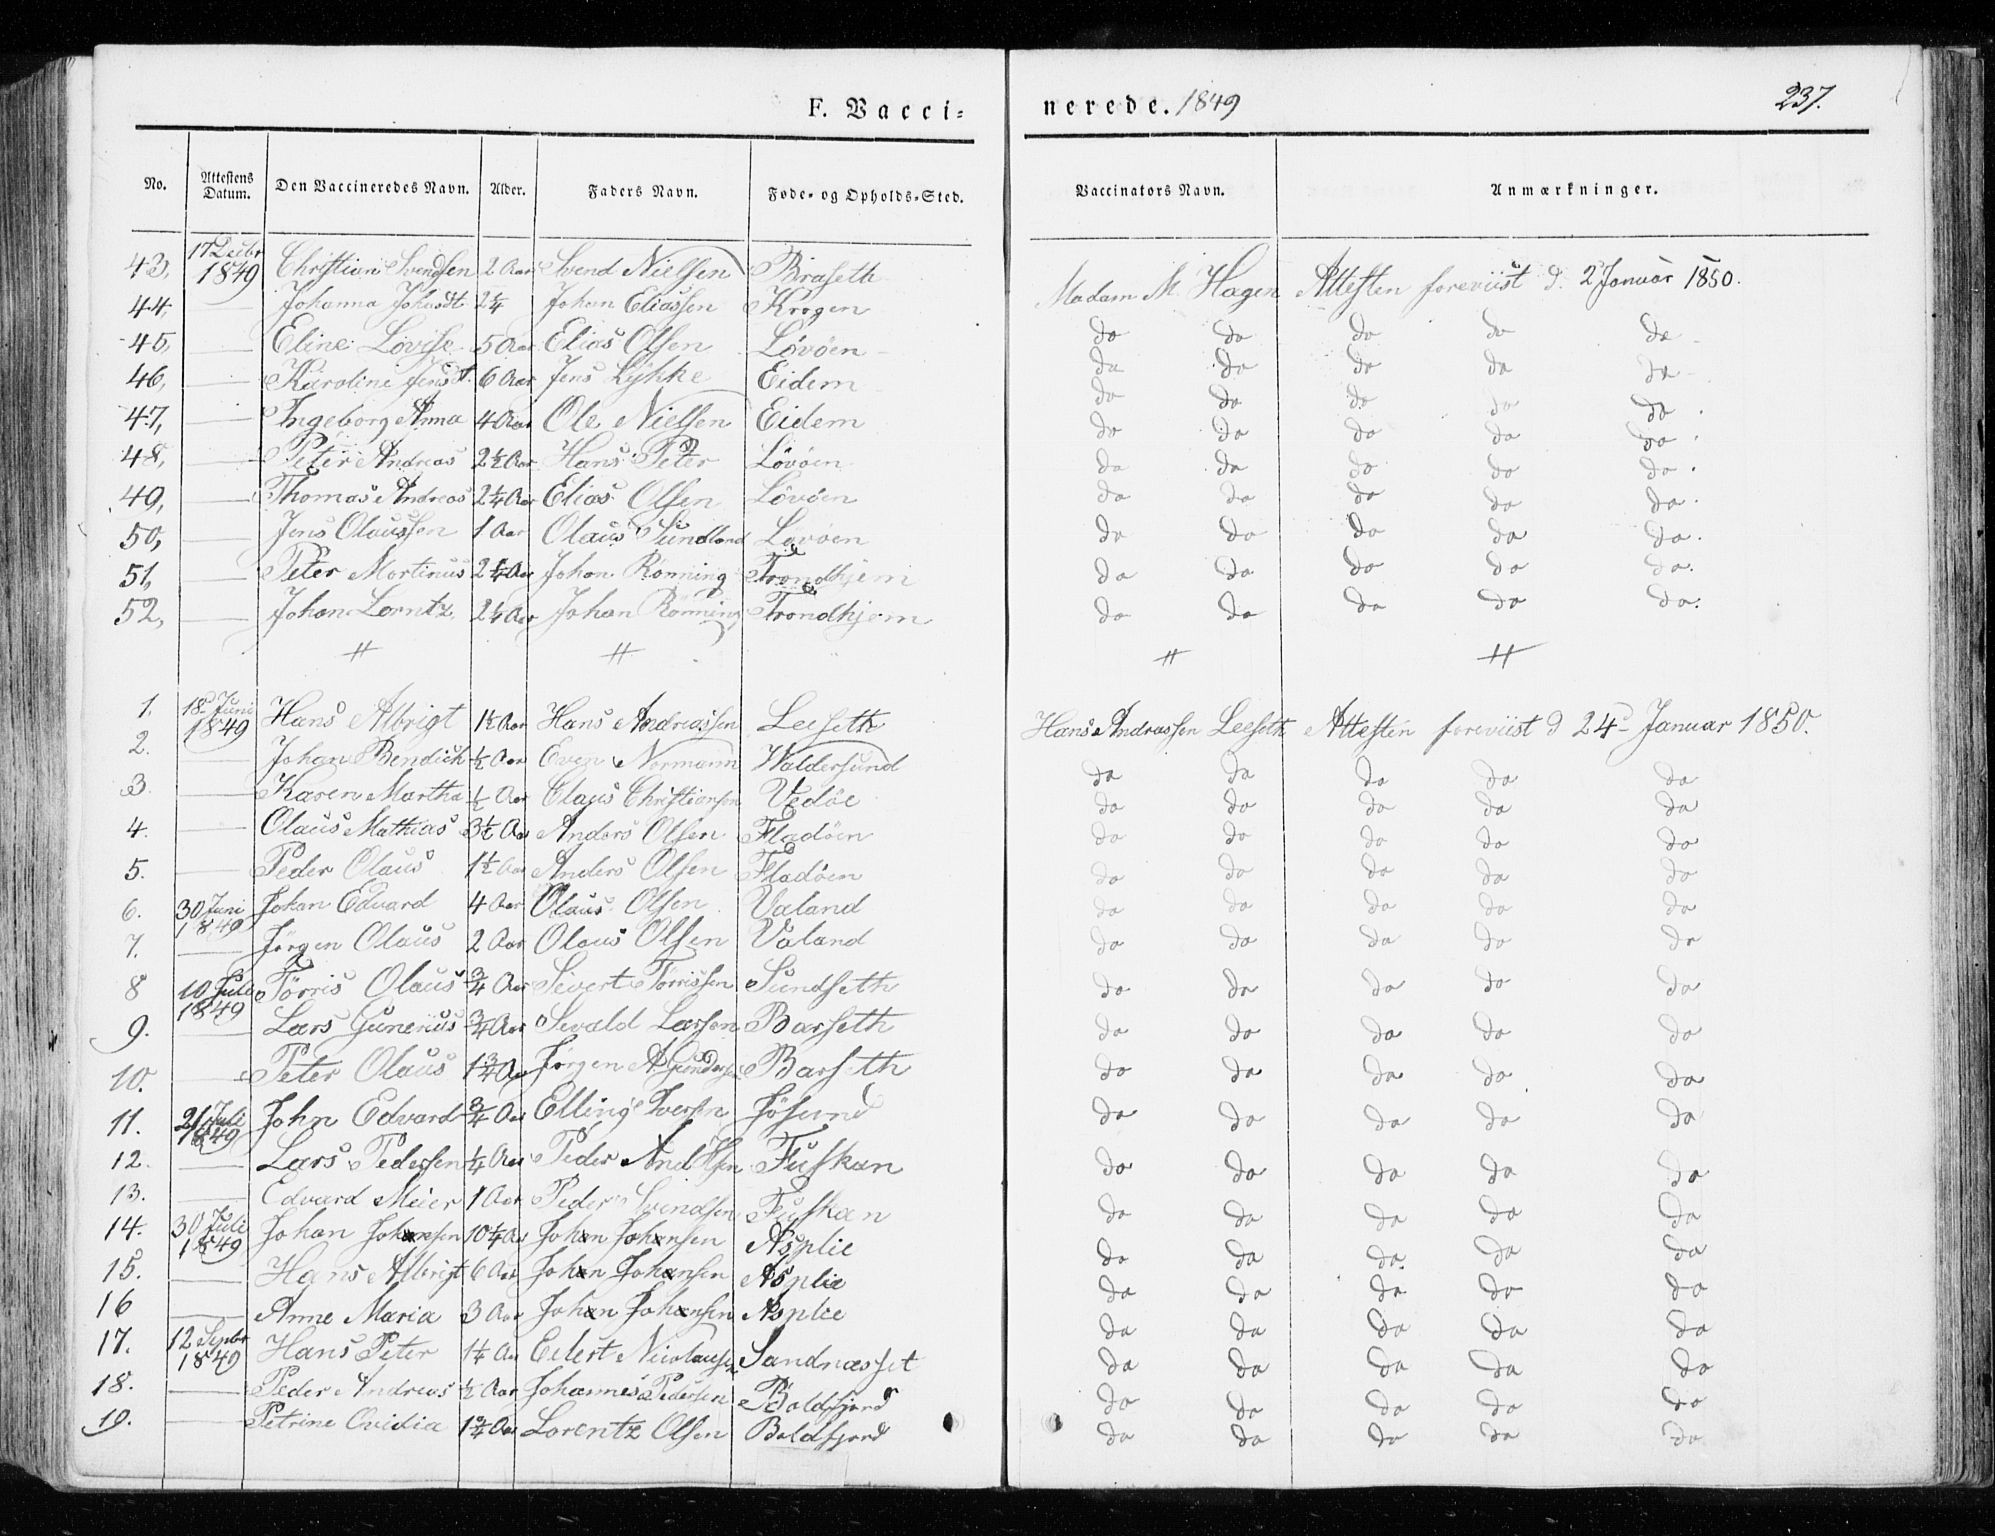 F. Vacci= nerede. 1849 237.
No. Attestens Datum. Den Vaccineredes Navn. Alder. Faders Navn. Føde- og Opholds-Sted. Vaccinators Navn. Anmærkninger.
43, 17 Decbr 1849 Christian Svendsen 2 Aar Svend Nielsen Braseth Madam M. Hagen Attesten foreviist d. 2 Januar 1850.
44, — Johanna Johansdt 2¼ Johan Eliassen Krogen do do do do do
45, — Eline Lovise 5 Aar Elias Olsen Løvøen do do do do do
46, — Karoline Jensdt. 6 Aar Jens Lykke Eidem do do do do do
47, — Ingeborg Anna 4 Aar Ole Nielsen Eidem do do do do do
48, — Peter Andreas 2½ Aar Hans Peter Løvøen do do do do do
49, — Thomas Andreas 2¼ Aar Elias Olsen Løvøen do do do do do
50, — Jens Olaussen 1 Aar Olaus Sundland Løvøen do do do do do
51, — Peter Martinus 2¼ Aar Johan Rønning Trondhjem do do do do do
52, — Johan Lorntz 2¼ Aar Johan Rønning Trondhjem do do do do do
1. 18. Juni 1849 Hans Albrigt 1½ Aar Hans Andreassen Leeseth Hans Andreassen Leeseth Attesten foreviist d 24 Januar 1850.
2. — Johan Bendich ½ Aar Even Normann Waldersund do do do do do
3. — Karen Martha ½ Aar Claus Christiansen Vedøe do do do do do
4. — Olaus Mathias 3½ Aar Anders Olsen Fladøen do do do do do
5. — Peder Olaus 1½ Aar Anders Olsen Fladøen do do do do do
6. 30 Juni 1849 Johan Edvard 4 Aar Olaus Olsen Valand do do do do do
7. — Jørgen Olaus 2 Aar Olaus Olsen Valand do do do do do
8 10 Juli 1849 Tørris Olaus ¾ Aar Sivert Tørrissen Sundseth do do do do do
9. — Lars Gunerius ¾ Aar Sevald Larsen Barseth do do do do do
10. — Peter Olaus 1¾ Aar Jørgen Barseth do do do do do
11. 21 Juli 1849 John Edvard ¾ Aar Elling Iversen Jøsund do do do do do
12. — Lars Pedersen ¼ Aar Peder Fuskan do do do do do
13. — Edvard Meier 1 Aar Peder Svendsen Fuskan do do do do do
14. 30 Juli 1849 Johan Johansen 10¼ Aar Johan Johansen Asplie do do do do do
15. — Hans Albrigt 6 Aar Johan Johansen Asplie do do do do do
16 — Anne Maria 3 Aar Johan Johansen Asplie do do do do do
17. 12 Septbr 1849 Hans Peter 1¼ Aar Eilert Nicolausen Sandnæsset do do do do do
18. — Peder Andreas ½ Aar Johannes Pedersen Boldsfjord do do do do do
19. — Petrine Ovidia 1¾ Aar Lorentz Olsen Boldsfjord do do do do do